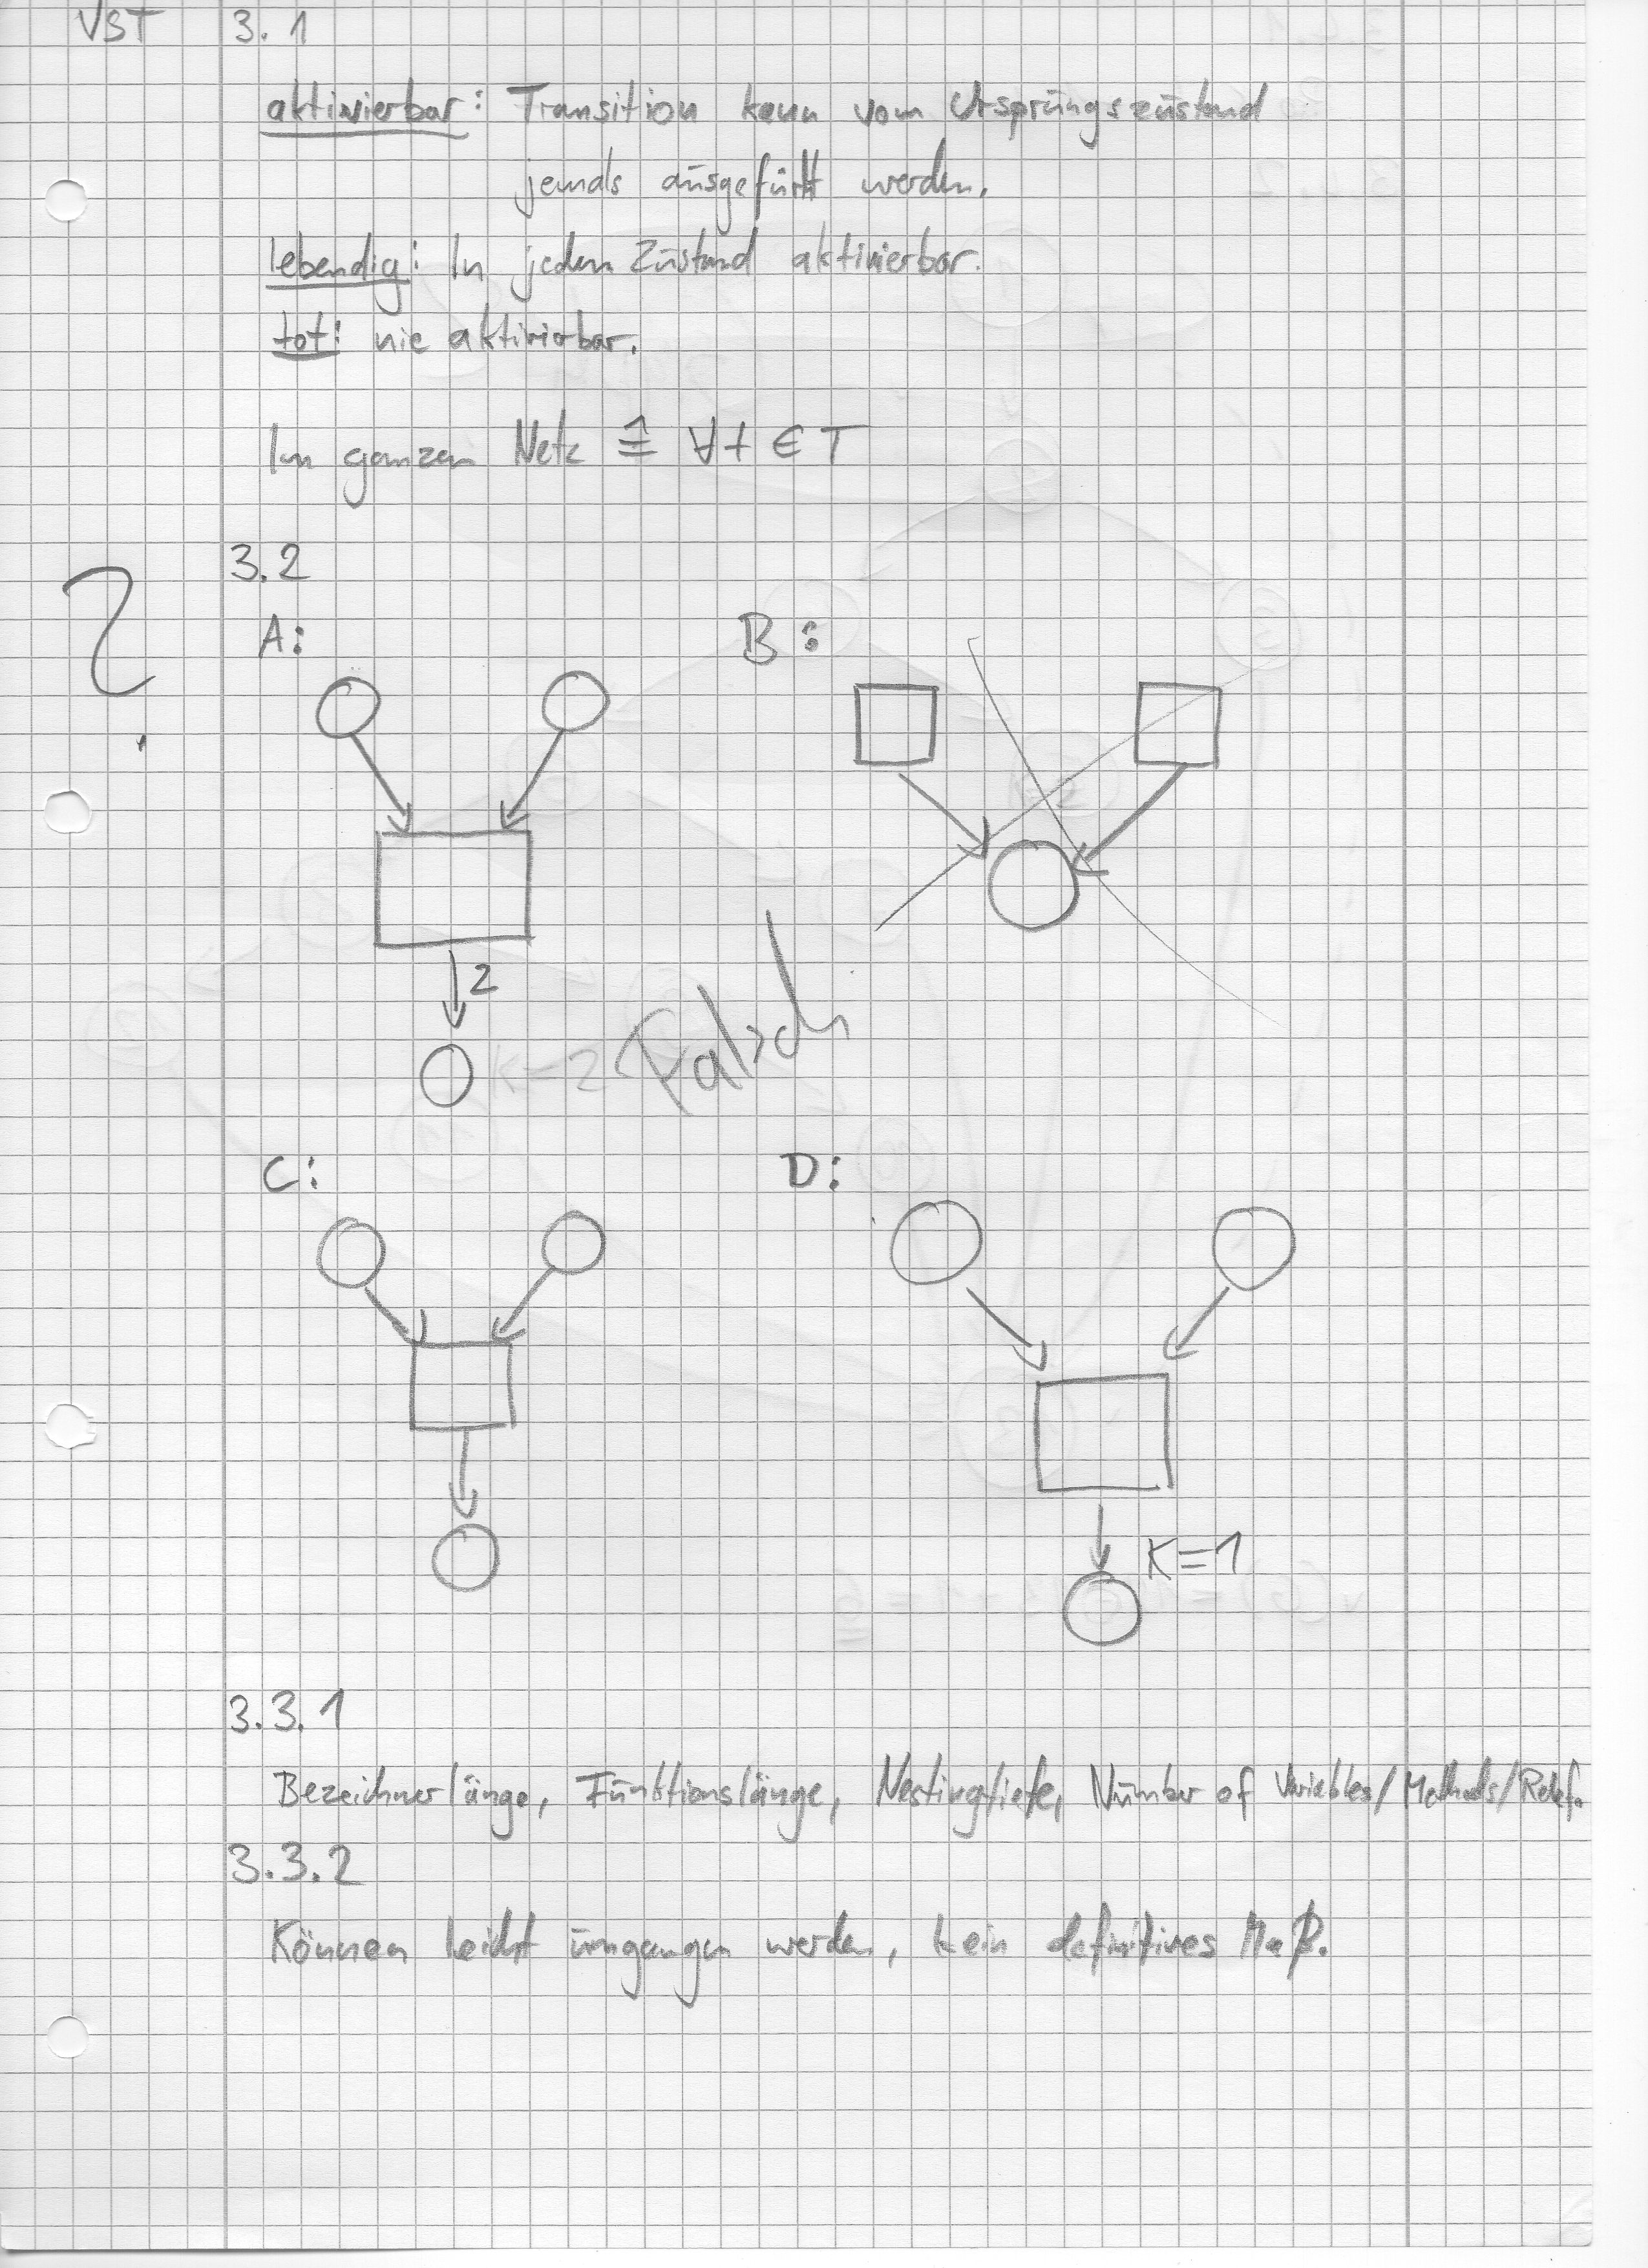 VST 3.1
aktivierbar: Transition kann vom Ursprungszustand
jemals ausgefürht werden.
lebendig: In jedem Zustand aktivierbar.
tot: nie aktivierbar.
Im ganzen Netz ≙ ∀t ∈ T
3.2
?
A: B:
2
K=2 Falsch
C: D:
K=1
3.3.1
Bezeichnerlänge, Funktionslänge, Nestingtiefe, Number of Variables/Methods/
3.3.2
Können leicht umgangen werden, kein definitives Maß.